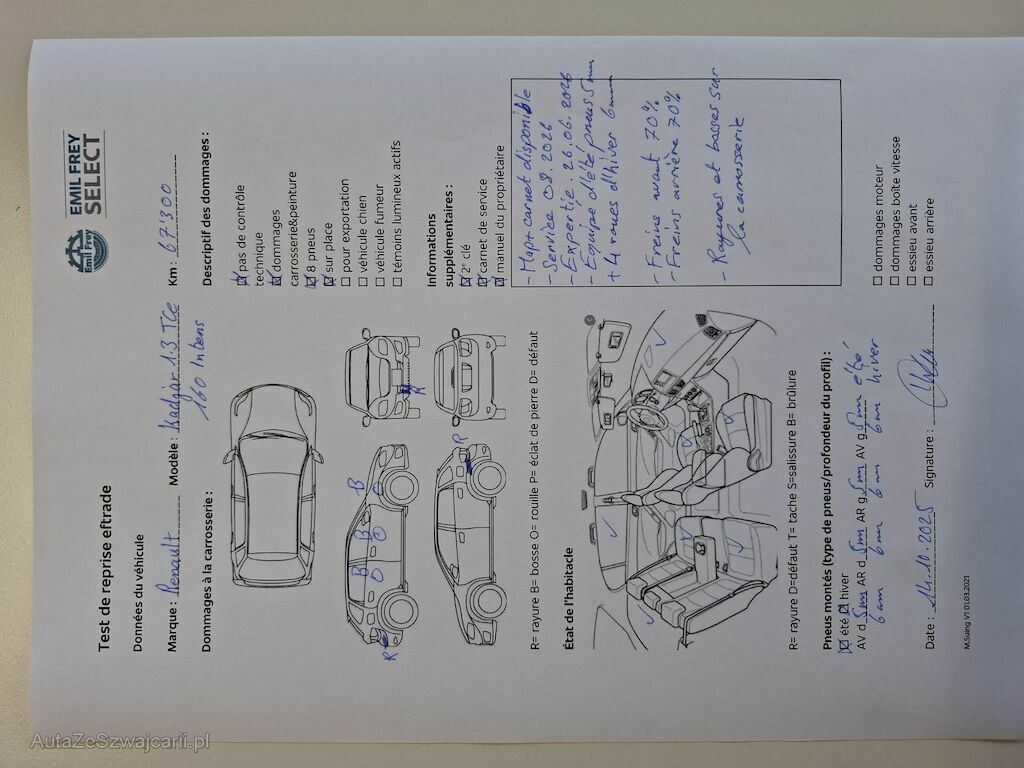 EMIL FREY
SELECT
Emil Frey
Test de reprise eftrade
Données du véhicule
Marque : Renault Modèle : Kadjar 1.3 TCe Km : 67300
160 Intens
Dommages à la carrosserie :
Descriptif des dommages :
pas de contrôle
technique
dommages
carrosserie&peinture
8 pneus
sur place
pour exportation
véhicule chien
véhicule fumeur
témoins lumineux actifs
R
B
B
B
R
R
R= rayure B= bosse O= rouille P= éclat de pierre D= défaut
Informations
supplémentaires :
2° clé
carnet de service
manuel du propriétaire
- Map + carnet disponible
- Service 08.2026
- Expertie. 26.06.2026
- Equipe d'été pneus 5mm
+ 4 roues d'hiver 6mm
- Freins avant 70%
- Freins arrière 70%
- Rayures et bosses sur
la carrosserie
État de l'habitacle
R= rayure D=défaut T= tache S=salissure B= brûlure
Pneus montés (type de pneus/profondeur du profil) :
été hiver
AV d 5mm AR d 5mm AR g 5mm AV g 5mm été
6mm 6mm 6mm 6mm hiver
dommages moteur
dommages boîte vitesse
essieu avant
essieu arrière
Date : 14.10.2025 Signature :
M.Suing V1 01.03.2021
AutaZeSzwajcarii.pl